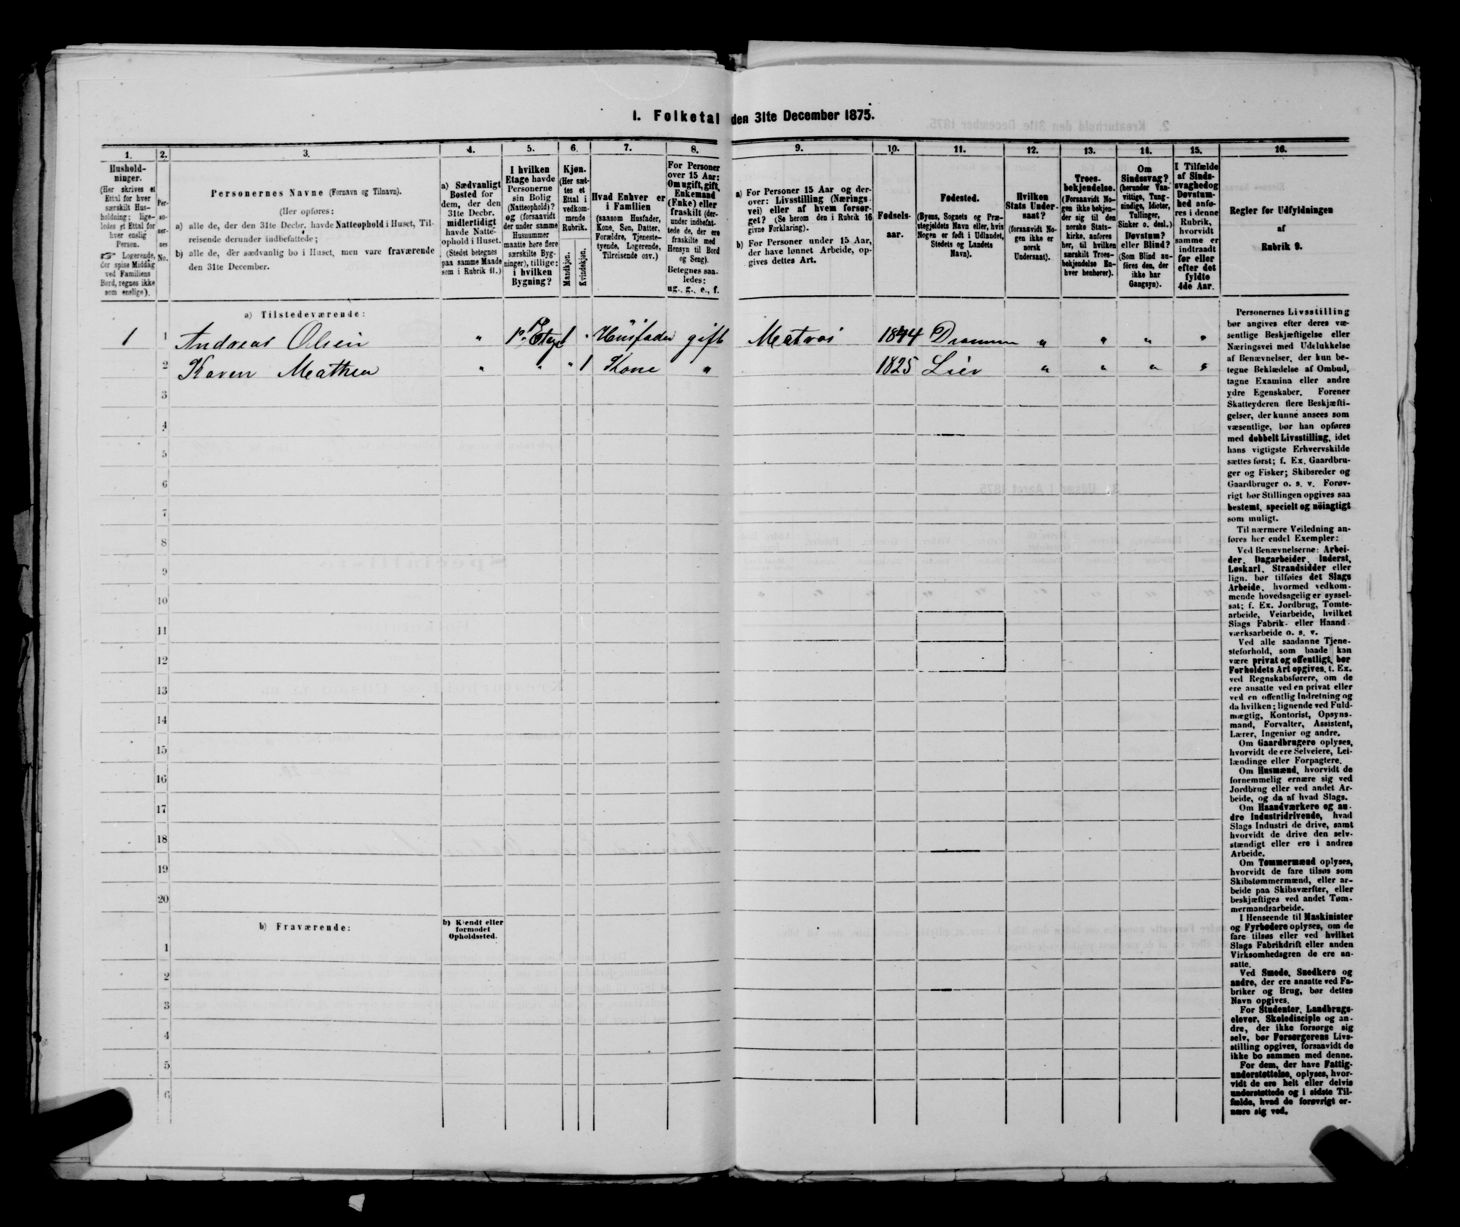 1. Folketal den 31te December 1875.
1.
2.
3.
4.
5.
6.
7.
8.
9.
10.
11.
12.
13.
14.
15.
16.
Hushold-
ninger.
(Her skrives et
Ettal for hver
særskilt Hus-
holdning; lige-
ledes et Ettal for
hver enslig
Person.
☞ Logerende,
der spise Middag
ved Familiens
Bord, regnes ikke
som enslige).
Per-
so-
ner-
nes
No.
Personernes Navne (Fornavn og Tilnavn).
(Her opføres:
a) alle de, der den 31te Decbr. havde Natteophold i Huset, Til-
reisende derunder indbefattede;
b) alle de, der sædvanlig bo i Huset, men vare fraværende
den 31te December.
a) Sædvanligt
Bosted for
dem, der den
31te Decbr.
midlertidigt
havde Natte-
ophold i Huset.
(Stedet betegnes
paa samme Maade
som i Rubrik 11.)
I hvilken
Etage havde
Personerne
sin Bolig
(Natteophold)?
og (forsaavidt
der under samme
Husnummer
maatte høre flere
særskilte Byg-
ninger), tillige:
i hvilken
Bygning?
Kjøn.
(Her sæt-
tes et
Ettal i
vedkom-
mende
Rubrik.
Mandkjøn.
Kvindekjøn.
Hvad Enhver er
i Familien
(saasom Husfader,
Kone, Søn, Datter,
Forældre, Tjeneste-
tyende, Logerende,
Tilreisende osv.)
For Personer
over 15 Aar:
Om ugift, gift,
Enkemand
(Enke) eller
fraskilt (der-
under indbefat-
tede de, der ere
fraskilte med
Hensyn til Bord
og Seng).
Betegnes saa-
ledes:
ug., g., e., f.
a) For Personer 15 Aar og der-
over: Livsstilling (Nærings-
vei) eller af hvem forsør-
get? (Se herom den i Rubrik 16
givne Forklaring).
b) For Personer under 15 Aar,
der have lønnet Arbeide, op-
gives dettes Art.
Fødsels-
aar.
Fødested.
(Byens, Sognets og Præ-
stegjeldets Navn eller, hvis
Nogen er født i Udlandet,
Stedets og Landets
Navn).
Hvilken
Stats Under-
saat?
(forsaavidt No-
gen ikke er
norsk
Undersaat).
Troes-
bekjendelse.
(Forsaavidt No-
gen ikke bekjen-
der sig til den
norske Stats-
kirke, anføres
her, til hvilken
særskilt Troes-
bekjendelse En-
hver henhører).
Om
Sindssvag?
(herunder Van-
vittige, Tung-
sindige, Idioter,
Tullinger,
Sinker o. desl.)
Døvstum?
eller Blind?
(Som Blind an-
føres den, der
ikke har
Gangsyn).
I Tilfælde
af Sinds-
svaghed og
Døvstum-
hed anfø-
res i denne
Rubrik,
hvorvidt
samme er
indtraadt
før eller
efter det
fyldte
4de Aar.
Regler for Udfyldningen
af
Rubrik 9.
a) Tilstedeværende:
1 1 Andreas Olsen " 1. Etage 1 " Husfader gift Matros 1844 Drammen " " " "
2 Karen Mathea " " " 1 Kone " 1825 Lier " " " "
3
4
5
6
7
8
9
10
11
12
13
14
15
16
17
18
19
20
b) Fraværende:
b) Kjendt eller
formodet
Opholdssted.
1
2
3
4
5
6
Personernes Livsstilling
bør angives efter deres væ-
sentlige Beskjæftigelse eller
Næringsvei med Udelukkelse
af Benævnelser, der kun be-
tegne Beklædelse af Ombud,
tagne Examina eller andre
ydre Egenskaber. Forener
Skatteyderen flere Beskjæfti-
gelser, der kunne ansees som
væsentlige, bør han opføres
med dobbelt Livsstilling, idet
hans vigtigste Erhvervskilde
sættes først; f. Ex. Gaardbru-
ger og Fisker; Skibsreder og
Gaardbruger o. s. v. Forøv-
rigt bør Stillingen opgives saa
bestemt, specielt og nöiagtigt
som muligt.
Til nærmere Veiledning an-
føres her endel Exempler:
Ved Benævnelserne: Arbei-
der, Dagarbeider, Inderst,
Løskarl, Strandsidder eller
lign. bør tilføies det Slags
Arbeide, hvormed vedkom-
mende hovedsagelig er syssel-
sat; f. Ex. Jordbrug, Tomte-
arbeide, Veiarbeide, hvilket
Slags Fabrik- eller Haand-
værksarbeide o. s. v.
Ved alle saadanne Tjene-
steforhold, som baade kan
være privat og offentligt, bør
Forholdets Art opgives, f. Ex.
ved Regnskabsførere, om de
ere ansatte ved en privat eller
ved en offentlig Indretning og
da hvilken; lignende ved Fuld-
mægtig, Kontorist, Opsyns-
mand, Forvalter, Assistent,
Lærer, Ingeniør og andre.
Om Gaardbrugere oplyses,
hvorvidt de ere Selveiere, Lei-
lændinge eller Forpagtere.
Om Husmænd, hvorvidt de
fornemmelig ernære sig ved
Jordbrug eller ved andet Ar-
beide, og da af hvad Slags.
Om Haandværkere og an-
dre Industridrivende, hvad
Slags Industri de drive, samt
hvorvidt de drive den selv-
stændigt eller ere i andres
Arbeide.
Om Tømmermænd oplyses,
hvorvidt de fare tilsøs som
Skibstømmermænd, eller ar-
beide paa Skibsværfter, eller
beskjæftiges ved andet Tøm-
mermandsarbeide.
I Henseende til Maskinister
og Fyrbødere oplyses, om de
fare tilsøs eller ved hvilket
Slags Fabrikdrift eller anden
Virksomhedsgren de ere an-
satte.
Ved Smede, Snedkere og
andre, der ere ansatte ved Fa-
briker og Brug, bør dettes
Navn opgives.
For Studenter, Landbrugs-
elever, Skoledisciple og an-
dre, der ikke forsørge sig
selv, bør Forsørgerens Livs-
stilling opgives, forsaavidt de
ikke bo sammen med denne.
For dem, der have Fattig-
understøttelse, oplyses, hvor-
vidt de ere helt eller delvis
understøttede og i sidste Til-
fælde, hvad de forøvrigt er-
nære sig ved.